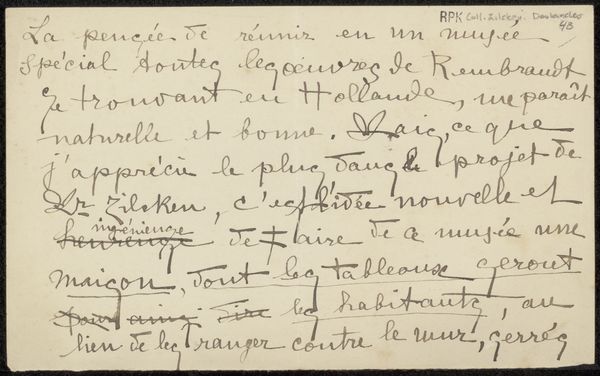 RPK Coll. Zilcken.
48
La pensée de réunir en un musée
spécial toutes les œuvres de Rembrandt
se trouvant en Hollande, me paraît
naturelle et bonne. Mais, ce que
j'apprécie le plus dans le projet de
Mr Zilcken, c'est l'idée nouvelle et
ingénieuse
heureuse de faire de ce musée une
maison, dont les tableaux seront
pour ainsi dire les habitants, au
lieu de les ranger contre le mur, serrés